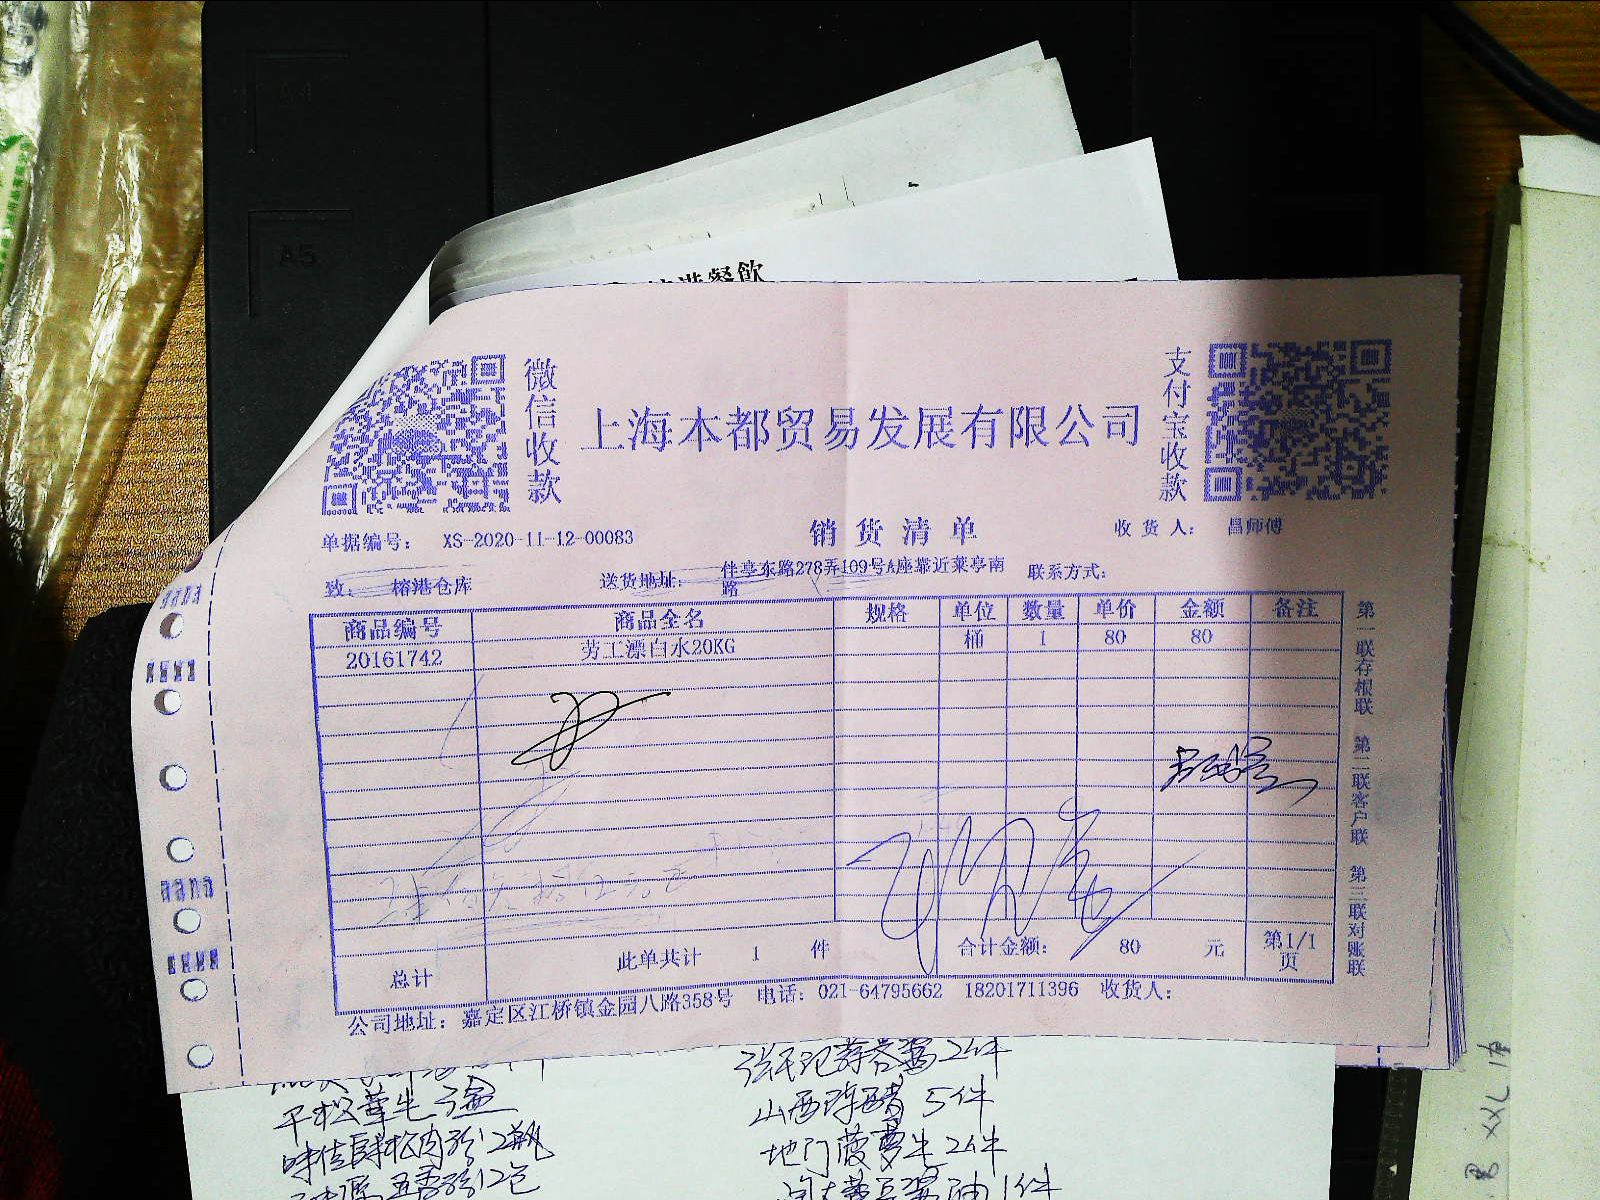 A5
港餐飲
微信收款
上海木都贸易发展有限公司
支付宝收款
销货清单
单据编号： XS-2020-11-12-00083
收货人： 昌师傅
致： 榕港仓库
送货地址： 伴亭东路278弄109号A座靠近莱亭南路
联系方式：
商品编号 商品全名 规格 单位 数量 单价 金额 备注
20161742 劳工漂白水20KG 桶 1 80 80
总计 此单共计 1 件 合计金额： 80 元 第1/1页
公司地址： 嘉定区江桥镇金园八路358号 电话：021-64795662 18201711396 收货人：
第一联存根联 第二联客户联 第三联对账联
2件
山西陈醋 5件
2瓶
地门菠萝 2件
五香粉12包
1件
XXL 1件